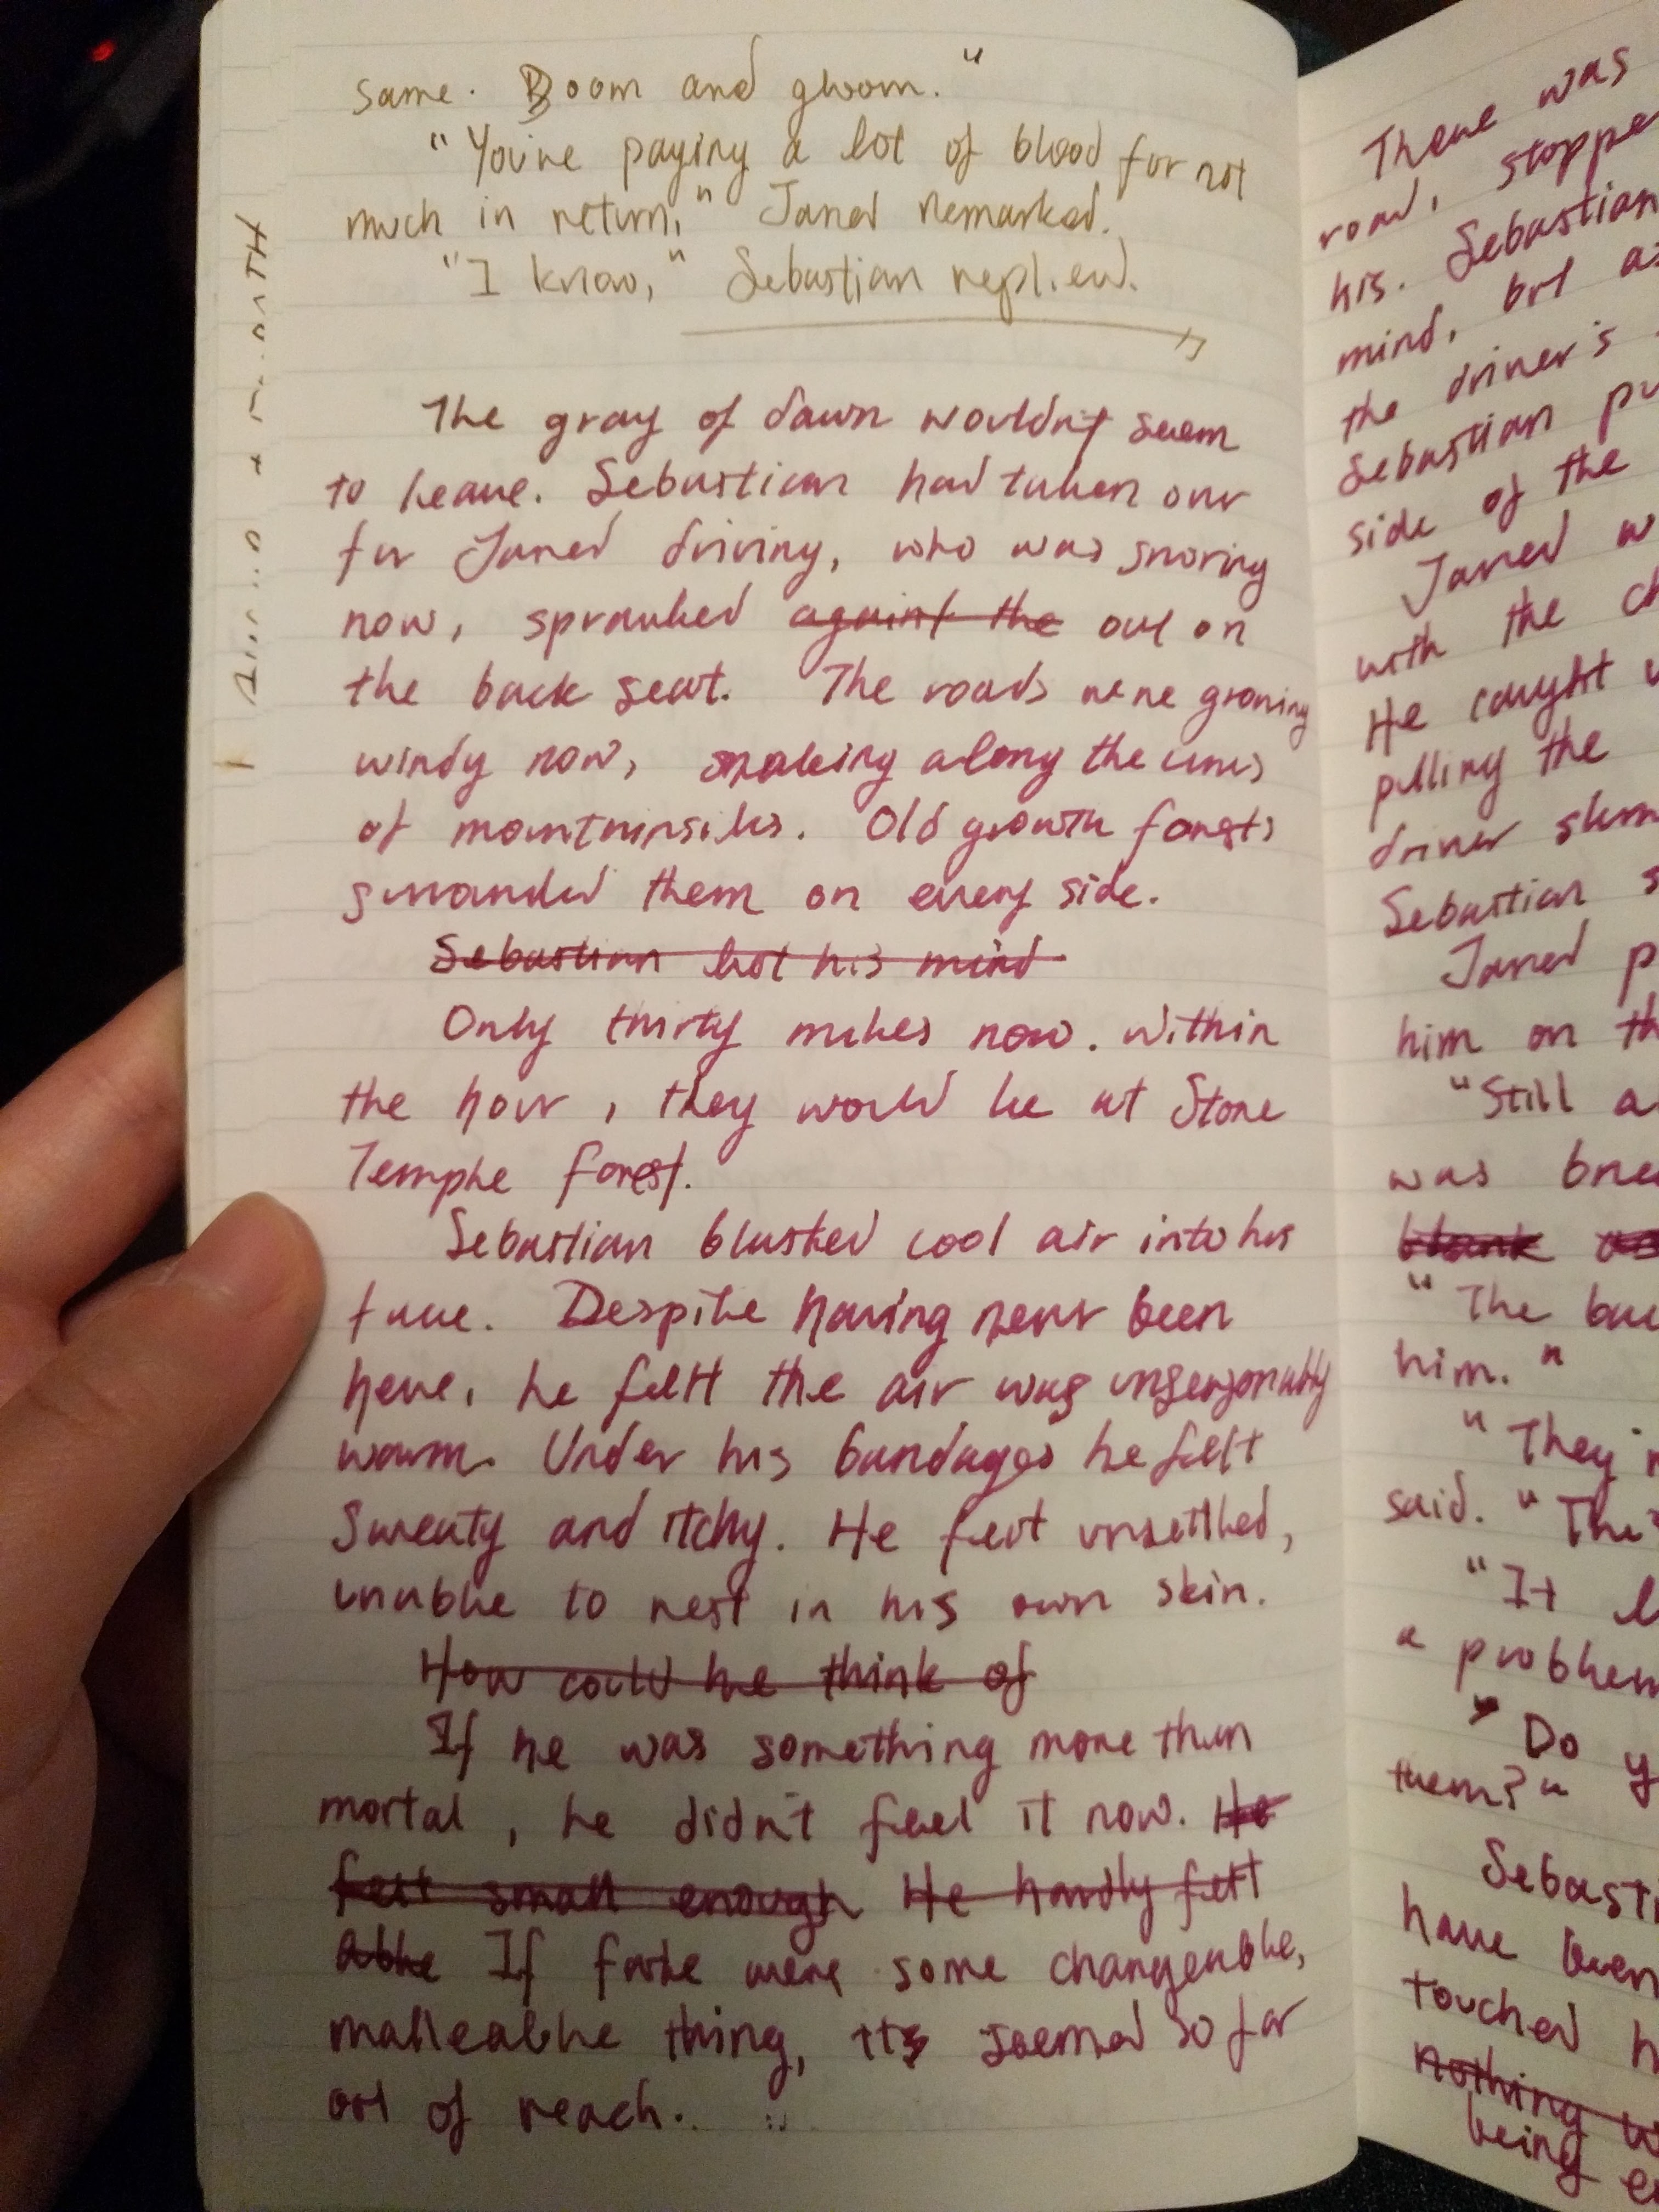 same. Doom and gloom."
"You're paying a lot of blood for not
much in return," Jared remarked.
"I know," Sebastian replied.
The gray of dawn wouldn't seem
to leave. Sebastian had taken over
for Jared driving, who was snoring
now, sprawled against the out on
the back seat. The roads were growing
windy now, snaking along the
of mountainsides. Old growth forests
surrounded them on every side.
Sebastian let his mind
Only thirty miles now. Within
the hour, they would be at Stone
Temple forest.
Sebastian blasted cool air into his
face. Despite having never been
here, he felt the air was unseasonably
warm. Under his bandages he felt
sweaty and itchy. He felt unsettled,
unable to rest in his own skin.
How could he think of
If he was something more than
mortal, he didn't feel it now. He
felt small enough He hardly felt
able If fate were some changeable,
malleable thing, it seemed so far
out of reach.
There was
road, stoppe
his. Sebastian
mind, but as
the driver's
Sebastian pu
side of the
Jared w
with the ch
He caught
pulling the
driver slum
Sebastian s
Jared p
him on th
"Still a
was bre
blank as
"The bac
him."
"They'r
said. "The
"It l
a problem
"Do y
them?"
Sebasti
have been
touched h
nothing w
being e